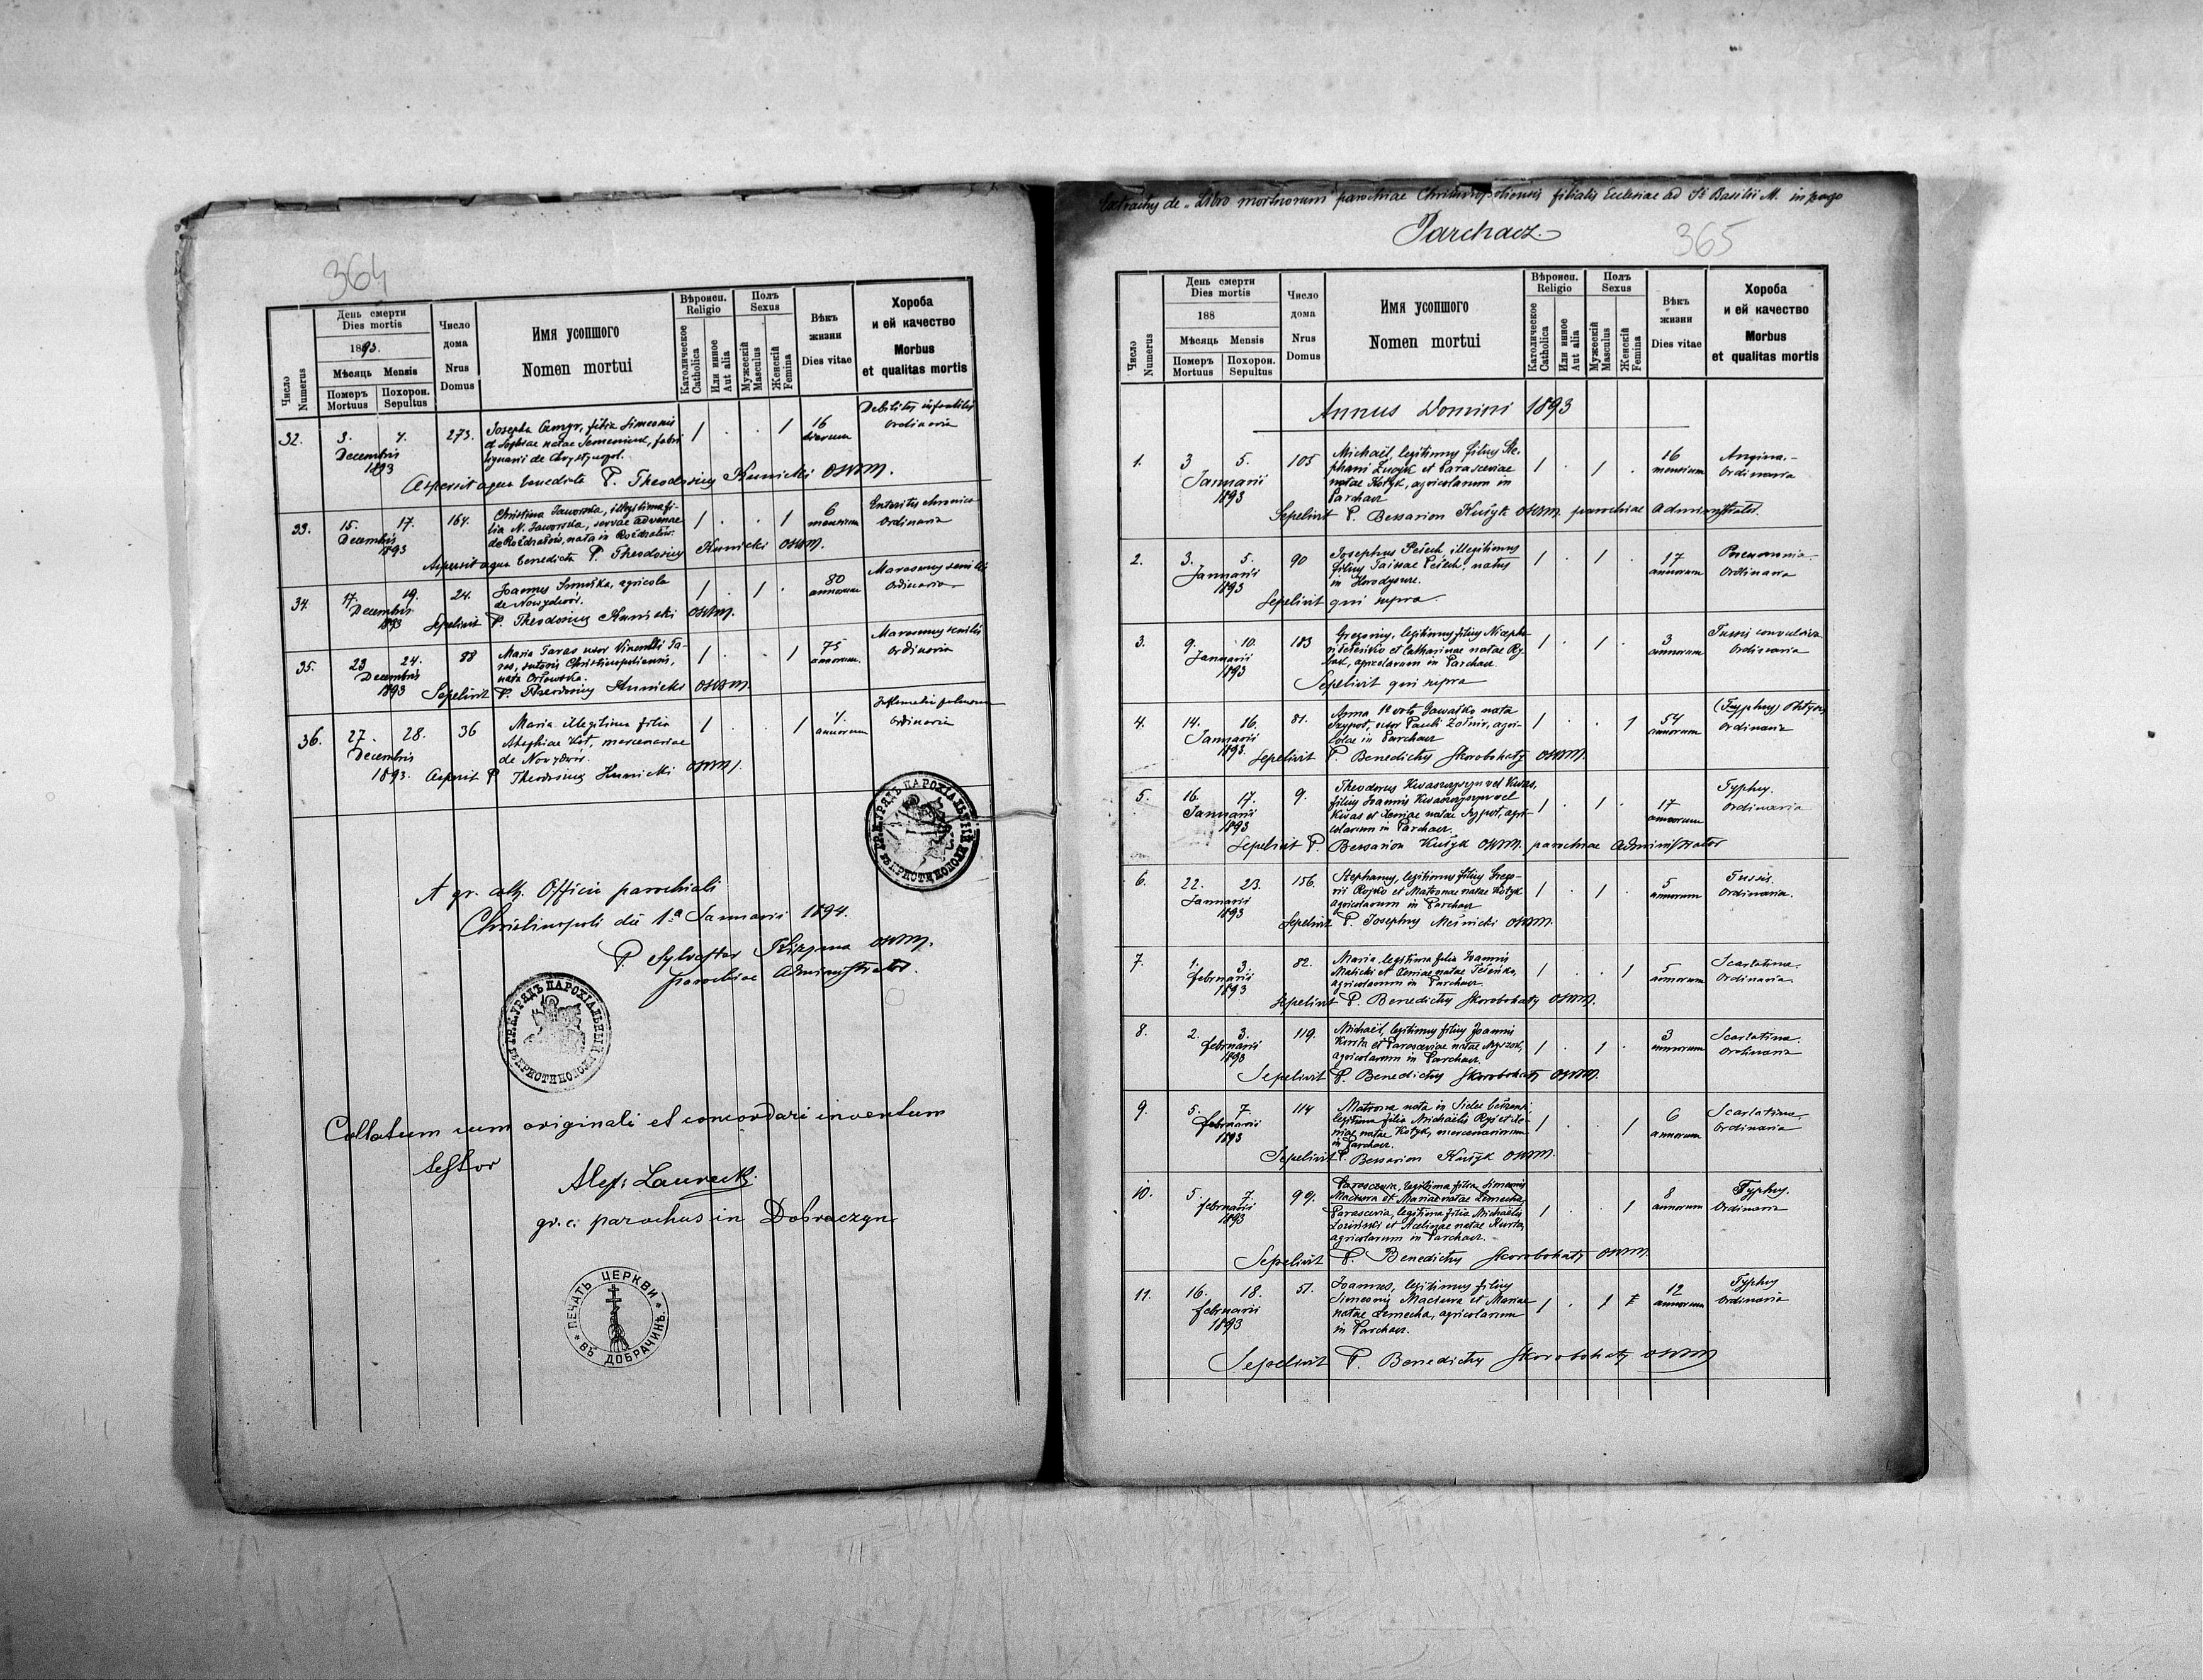 364
Число
Numerus
День смерти
Dies mortis
1893.
Мѣсяць Mensis
Померъ
Mortuus
Похорон.
Sepultus
Число
дома
Nrus
Domus
Имя усопшого
Nomen mortui
Вѣроисп.
Religio
Католическое
Catholica
Или инное
Aut alia
Полъ
Sexus
Мужескій
Masculus
Женскій
Femina
Вѣкъ
жизни
Dies vitae
Хороба
и ей качество
Morbus
et qualitas mortis
32. 3. 4. Decembris 1893 273.
Josepha filia Simeonis
et Sophiae natae Semeniuk, fabri
lignarii de
1 . . 1 16 dierum
Debilitas infantilis
ordinaria
Aspersit aqua benedicta P. Theodosius Kunicki OSBM.
33. 15. 17. Decembris 1893 164.
Christina Jaworska, illegitima fi-
lia N. Jaworska, servae advenae
de Roźdzałów, nata in Roźdzałów.
1 . . 1 6 mensium
Enteritis chronica
Ordinaria
Aspersit aqua benedicta P. Theodosius Kunicki OSBM.
34. 17. 19. Decembris 1893 24.
Joannes agricola
de Nowydwór.
1 . 1 . 80 annorum
Marasmus senilis
Ordinaria
Sepelivit P. Theodosius Kunicki OSBM.
35. 23 24. Decembris 1893 88
Maria Taras uxor Vincentii Ta-
ras, sutoris Christinopoliensis,
nata Orłowska.
1 . . 1 75 annorum
Marasmus senilis
Ordinaria
Sepelivit P. Theodosius Kunicki OSBM.
36. 27. 28. Decembris 1893. 36
Maria illegitima filia
Kot, mercenariae
de Novydwór.
1 . . 1 annorum
pulmonum
Ordinaria
P. Theodosius Kunicki OSBM.
A gr. cath. Officio parochiali
Christinopoli die 1a Januarii 1894.
P. Sylvester OSBM.
parochiae Administrator.
Collatum cum originali et concordari inventum
testor
gr. c. parochus in Dobraczyn
ПЕЧАТЬ ЦЕРКВИ
ВЪ ДОБРАЧИНѢ.
Extractus de "Libro mortuorum" parochiae Christinopoliensis filialis Ecclesiae ad St Basilii M. in pago
Parchacz.
365
Число
Numerus
День смерти
Dies mortis
188
Мѣсяць Mensis
Померъ
Mortuus
Похорон.
Sepultus
Число
дома
Nrus
Domus
Имя усопшого
Nomen mortui
Вѣроисп.
Religio
Католическое
Catholica
Или инное
Aut alia
Полъ
Sexus
Мужескій
Masculus
Женскій
Femina
Вѣкъ
жизни
Dies vitae
Хороба
и ей качество
Morbus
et qualitas mortis
Annus Domini 1893
1. 3 5. Januarii 1893 105
Michaël, legitimus filius Ste-
phani et Parasceviae
natae Kotyk, agricolarum in
Parchacz
1 . 1 . 16 mensium
Angina.
Ordinaria
Sepelivit P. Bessarion Kuźyk OSBM. parochiae Administrator.
2. 3. 5. Januarii 1893 90
Josephus Pešech, illegitimus
filius Taissae Pešech, natus
in Horodyszcze.
1 . 1 . 17 annorum
Pneumonia.
Ordinaria
Sepelivit qui supra.
3. 9. 10. Januarii 1893 183
Gregorius, legitimus filius Nicepho-
ri et Catharinae natae
agricolarum in Parchacz
1 . 1 . 3 annorum
Tussis convulsiva
Ordinaria
Sepelivit qui supra
4. 14. 16. Januarii 1893. 81.
Anna 1o voto nata
Szypot, uxor Pauli Żołnir, agri-
colae in Parchacz
1 . . 1 54 annorum
(Typhus)
Ordinaria
Sepelivit P. Benedictus Skorobohaty OSBM.
5. 16. 17. Januarii 1893 9.
Theodorus vel Kwas,
filius Joannis vel
Kwas et Xeniae natae Szypot, agri-
colarum in Parchacz.
1 . 1 . 17 annorum
Typhus.
Ordinaria
Sepelivit P. Bessarion Kuźyk OSBM. parochiae Administrator
6. 22. 23. Januarii 1893 156.
Stephanus, legitimus filius Grego-
rii Rojko et Matronae natae Kotyk
agricolarum in Parchacz
1 . 1 . 5 annorum
Tussis.
Ordinaria.
Sepelivit P. Josephus OSBM.
7. 1. 3. februarii 1893 82.
Maria legitima filia Joannis
et Xeniae natae
agricolarum in Parchacz.
1 . . 1 5 annorum
Scarlatina.
Ordinaria
Sepelivit P. Benedictus Skorobohaty OSBM.
8. 2. 3. februarii 1893 119.
Michaël, legitimus filius Joannis
Kurta et Parasceviae natae
agricolarum in Parchacz.
1 . 1 . 3 annorum
Scarlatina.
Ordinaria
Sepelivit P. Benedictus Skorobohaty OSBM.
9. 5. 7. februarii 1893 114
Matrona nata in
legitima filia Michaëlis et Xe-
niae natae Kotyk, mercenariorum
in Parchacz.
1 . . 1 6 annorum
Scarlatina.
Ordinaria
Sepelivit P. Bessarion Kuźyk OSBM.
10. 5. 7. februarii 1893 99.
Parascevia, legitima filia Simeonis
Maciura et Mariae natae Lemecha,
Parascevia, legitima filia Michaëlis
Łoziński et natae Kurta,
agricolarum in Parchacz.
1 . . 1 8 annorum
Typhus.
Ordinaria
Sepelivit P. Benedictus Skorobohaty OSBM.
11. 16. 18. februarii 1893 51.
Joannes, legitimus filius
Simeonis Maciura et Mariae
natae Lemecha, agricolarum
in Parchacz.
1 . 1 12 annorum
Typhus
Ordinaria
Sepelivit P. Benedictus Skorobohaty OSBM